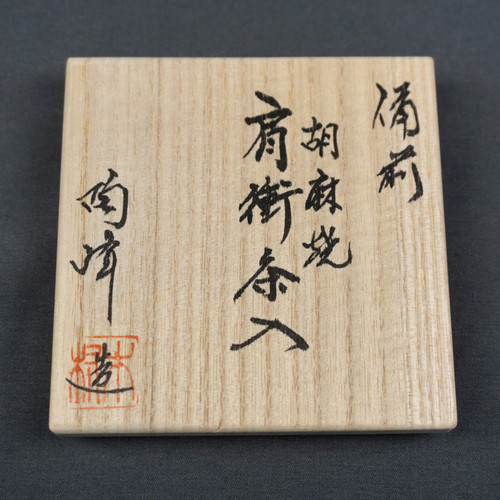 備前
胡麻焼
肩衝茶入
陶峰造